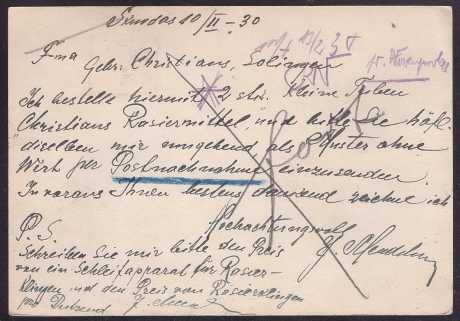 10/II - 30
Fma
Gebr. Christians, Solingen
Ich bestelle hiermit 2 stk. kleine Tuben
Christians Rasiermittel, und bitte Sie höfl.
dieselben mir umgehend als Muster ohne
Wert per Postnachnahme einzusenden.
In voraus Ihnen bestens dankend zeichne ich
Hochachtungsvoll
P. S.
Schreiben Sie mir bitte den Preis
von ein Schleifapparat für Rasier-
klingen und den Preis von Rasierklingen
per Dutzend